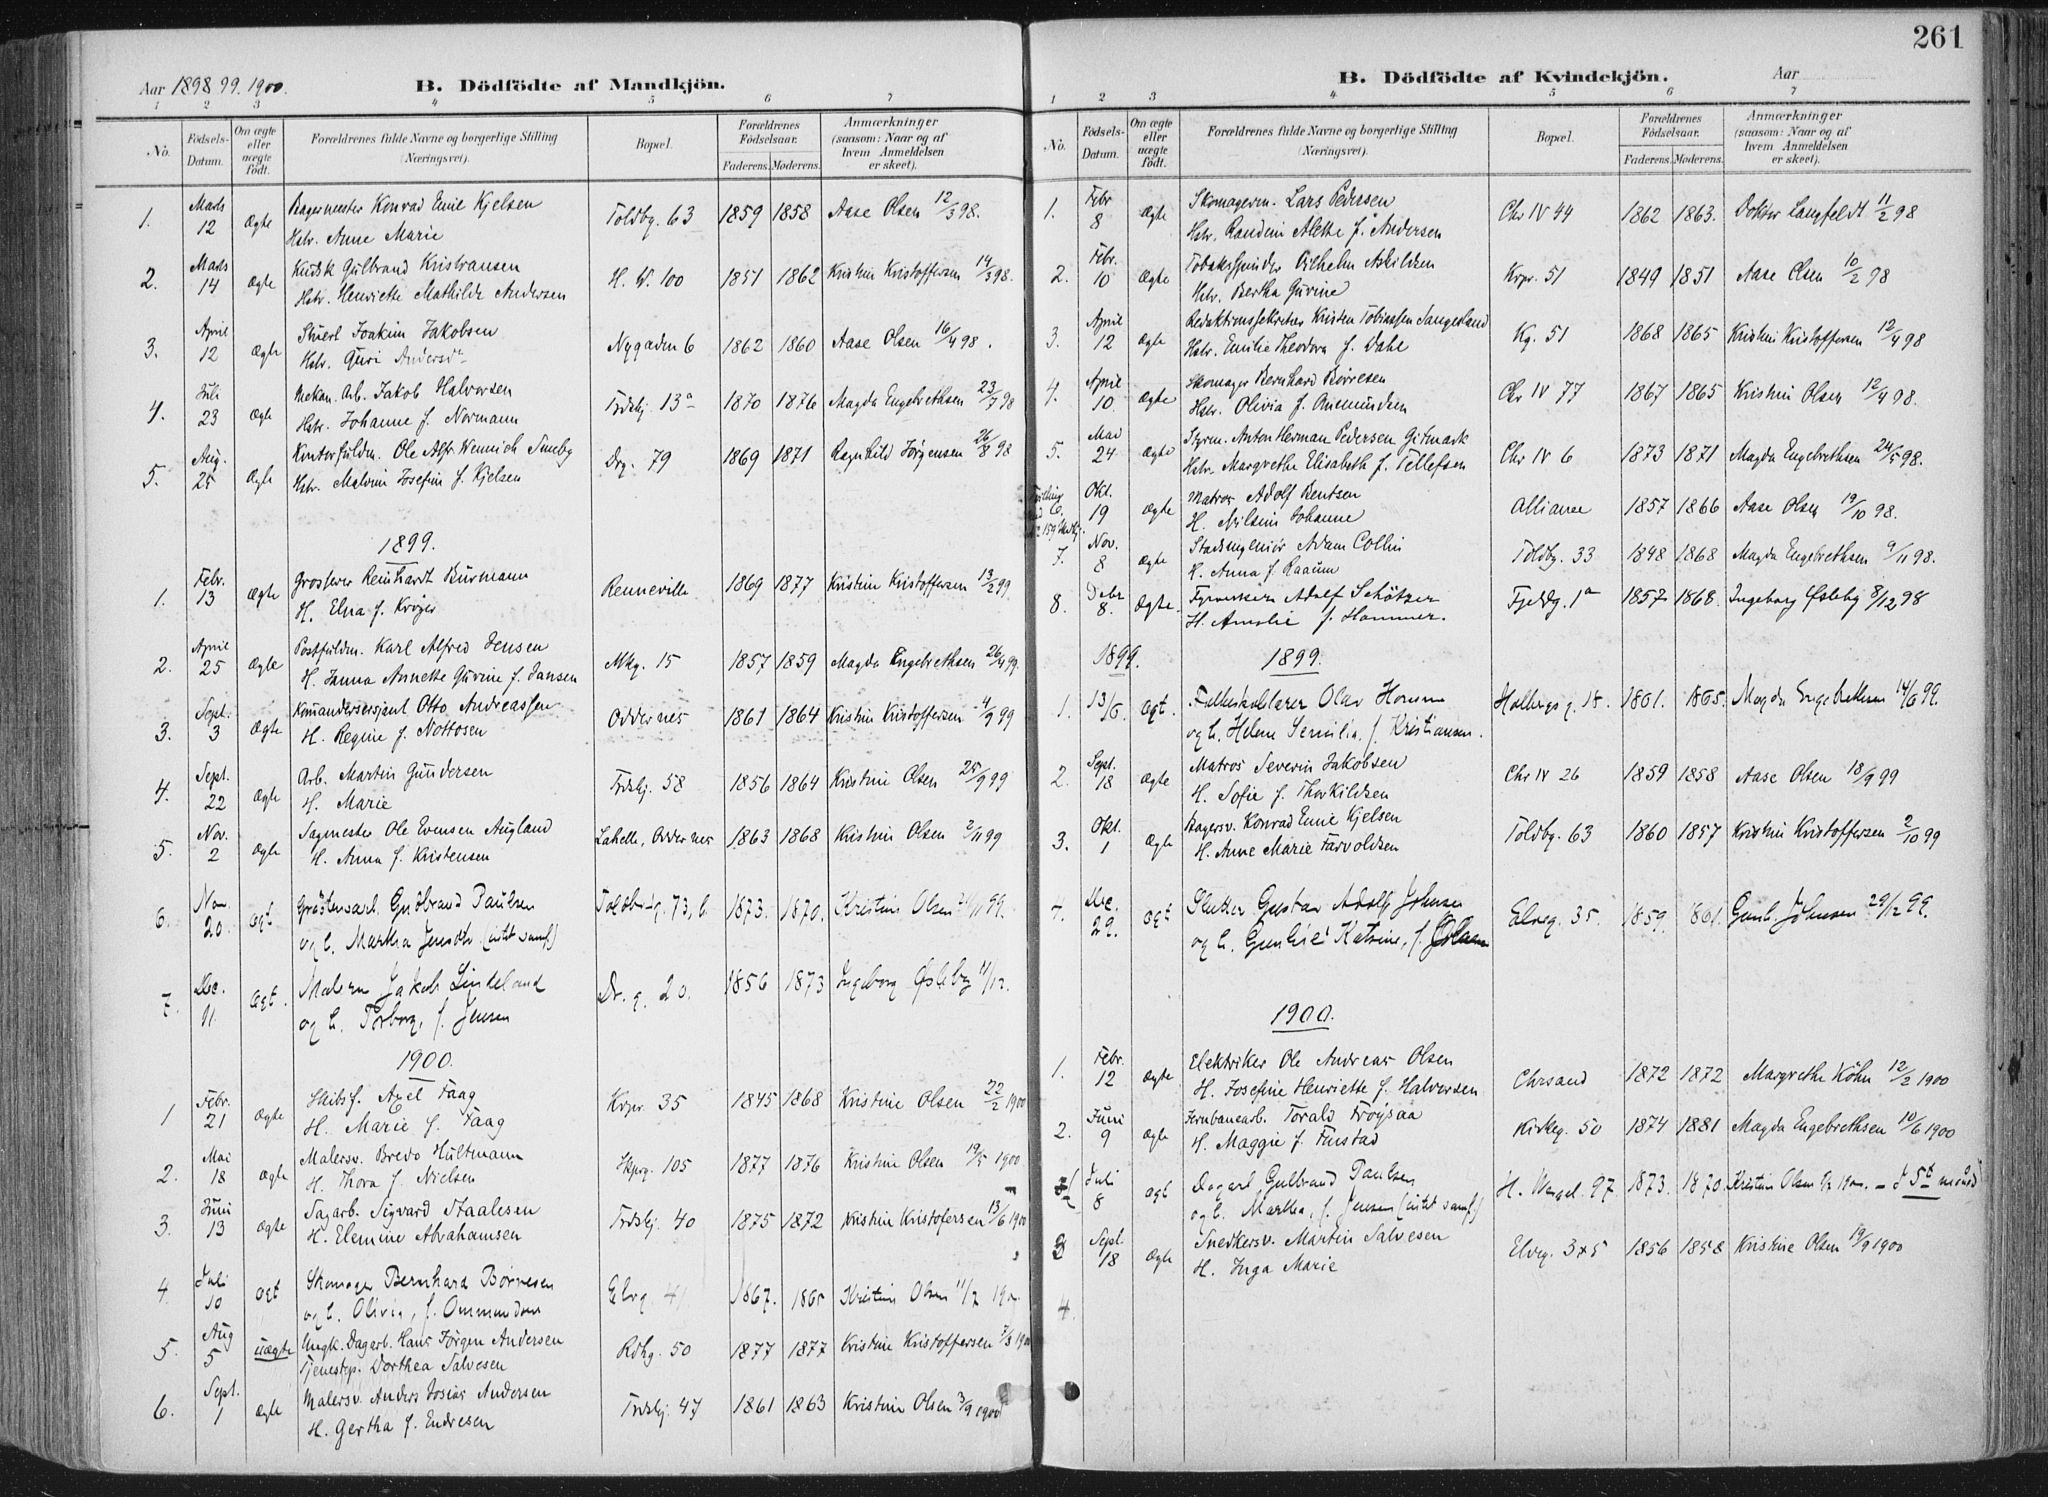 261
Aar 1898 99. 1900.
B. Dödfödte af Mandkjön.
1 2 3 4 5 6 7
No.
Födsels-Datum.
Om ægte eller uægte födt.
Forældrenes fulde Navne og borgerlige Stilling (Næringsvei).
Bopæl.
Forældrenes Födselsaar.
Faderens. Moderens.
Anmærkninger (saasom: Naar og af hvem Anmeldelsen er skeet).
1. Mads 12 Ægte Bagermester Konrad Emil Kjelsen Toldbg. 63 1859 1858 Aase Olsen 12/3 98.
Hstr. Anne Marie
2. Mads 14 Ægte Kudsk Gulbrand Kristiansen H. W. 100 1851 1862 Kristine Kristoffersen 14/3 98.
Hstr. Henriette Mathilde Andersen
3. April 12 Ægte Stuert Joakim Jakobsen Nygaden 6 1862 1860 Aase Olsen 16/4 98.
Hstr. Guri Andersdr
4. Juli 23 Ægte Mekan. Arb. Jakob Halvorsen Trdsbj. 13a 1870 1876 Magda Engebrethsen 23/7 98
Hstr. Johanne f. Normann
5. Aug. 25 Ægte Kontorfuldm. Ole Alfr. Wennich Smeby Drg. 79 1869 1871 Ragnhild Jørgensen 26/8 98
Hstr. Malvine Josefine f. Kjelsen
1899.
1. Febr. 13 Ægte Grosserer Reinhardt Burmann Renneville 1869 1877 Kristine Kristoffersen 13/2 99.
H. Elna f. Krøger
2. April 25 Ægte Postfuldm. Karl Alfred Jensen Mkg. 15 1857 1859 Magda Engebrethsen 26/4 99.
H. Janna Annette Gurine f. Jansen
3. Sept. 3 Ægte Komandersersjant Otto Andreassen Oddernes 1861 1864 Kristine Kristoffersen 4/9 99
H. Regine f. Nottosen
4. Sept. 22 Ægte Arb. Martin Gundersen Trdsbj. 58 1856 1864 Kristine Olsen 25/9 99
H. Marie
5. Nov. 2 Ægte Sagmester Ole Evensen Augland Lahelle, Oddernes 1863 1868 Kristine Olsen 2/11 99
H. Anna f. Kristensen
6. Nov. 20. Ægt Gudbrand Paulsen Toldb.g. 73, b. 1873. 1870. Kristine Olsen 21/11 99.
og h. Martha Jensdtr. (intet samf.)
7. Dec. 11. Ægt. Malern Jakob Lindeland Dr. g. 20. 1856 1873 Ingeborg Øsleby 11/12.
og h. Torborg, f. Jensen
1900.
1 Febr. 21 Ægte Skibsf. Axel Faag Krpr. 35 1845 1868 Kristine Olsen 22/2 1900
H. Marie f. Faag
2. Mai 18 Ægte Malersv. Bredo Hultmann Skprg. 105 1877 1876 Kristine Olsen 19/5 1900.
H. Thora f. Nielsen
3. Juni 13 Ægte Sagarb. Sigvard Staalesen Trdsbj. 40 1875 1872 Kristine Kristofersen 13/6 1900
H. Elemine Abrahamsen
4. Juli 10 Ægt Skomager Bernhard Børresen Elvg. 41 1867. 1865 Kristine Olsen 11/7 1900
og h. Olivia, f. Ommundsen
5. Aug 5 uægte Ungk. Dagarb. Hans Jørgen Andersen Rdhg. 50 1877 1877 Kristine Kristoffersen 7/8 1900
Tjenestep. Dorthea Salvesen
6. Sept. 1 Ægte Malersv. Anders Josias Andersen Trdsbj. 47 1861 1863 Kristine Olsen 3/9 1900
H. Gertha f. Endresen
B. Dödfödte af Kvindekjön.
Aar
1 2 3 4 5 6 7
No.
Födsels-Datum.
Om ægte eller uægte födt.
Forældrenes fulde Navne og borgerlige Stilling (Næringsvei).
Bopæl.
Forældrenes Födselsaar.
Faderens. Moderens.
Anmærkninger (saasom: Naar og af hvem Anmeldelsen er skeet).
1. Febr 8 Ægte Skomagerm. Lars Pedersen Chr IV 44 1862 1863. Doktor Langfeldt 11/2 98
Hstr. Randine Alette f. Andersen
2. Febr. 10 Ægte Tobakspinder Vilhelm Askildsen Krpr. 51 1849 1851 Aase Olsen 10/2 98
Hstr. Bertha Gurine
3. April 12 Ægte Redaktionssekretær Kristen Tobiassen Sangesland Kg. 51 1868 1865 Kristine Kristoffersen 12/4 98
Hstr. Emilie Theodora f. Dahl
4. April 10. Ægte Skomager Bernhard Børresen Chr IV 77 1867 1865 Kristine Olsen 12/4 98.
Hstr. Olivia f. Onemundsen
5. Mai 24 Ægte Styrm. Anton Herman Pedersen Gitmark Chr IV 6 1873 1871 Magda Engebrethsen 24/5 98.
Hstr. Margrethe Elisabeth f. Tellefsen
6. Okt. 19 Ægte Matros Adolf Bentsen Alliance 1857 1866 Aase Olsen 19/10 98.
H. Nilsine Johanne
7. Nov. 8 Ægte Stadsingeniør Adam Collin Toldbg. 33 1848 1868 Magda Engebrethsen 9/11 98.
H. Anna f. Raaum
8. Debr 8. Ægte Adolf Schötzer Fjeldg. 1a 1857 1868. Ingeborg Øsleby 8/12 98
H. Amalie f. Hammer.
1899. 1899.
1. 13/6. Ægt. Folkeskolelærer Olav Homme Holbergs g. 18. 1861. 1865. Magda Engebrethsen 14/6 99.
og h. Helene Serilia, f. Kristiansen.
2. Sept. 18 Ægte Matros Severin Jakobsen Chr IV 26 1859 1858 Aase Olsen 18/9 99
H. Sofie f. Thorkildsen
3. Okt. 1 Ægte Bagersv. Konrad Emil Kjelsen Toldbg. 63 1860 1857 Kristine Kristoffersen 2/10 99
H. Anne Marie Farvoldsen
Dec. 29. Ægt Slakter Gustav Adolf Johnsen Elveg. 35 1859. 1861. Gunh. Johnsen 29/12 99.
og h. Gunhild Katrine, f. Olsen
1900.
1. Febr. 12 Ægte Elektriker Ole Andreas Olsen Chrsand 1872 1872 Margrethe Köhn 12/2 1900
H. Josefine Henriette f. Halvorsen
2. Juni 9 Ægte Jernbanearb. Torald Frøysaa Kirkeg. 50 1874 1881 Magda Engebrethsen 10/6 1900
H. Maggie f. Finstad
Juli 8 Ægt Dagarb. Gulbrand Paulsen H. Wergel. 97. 1873. 1870. Kristine Olsen - i 5te maaned
og h. Martha, f. Jensen (intet samf.)
3 Sept. 18 Ægte Snedkersv. Martin Salvesen Elveg. 3x5 1856 1858 Kristine Olsen 19/9 1900
H. Inga Marie
4.